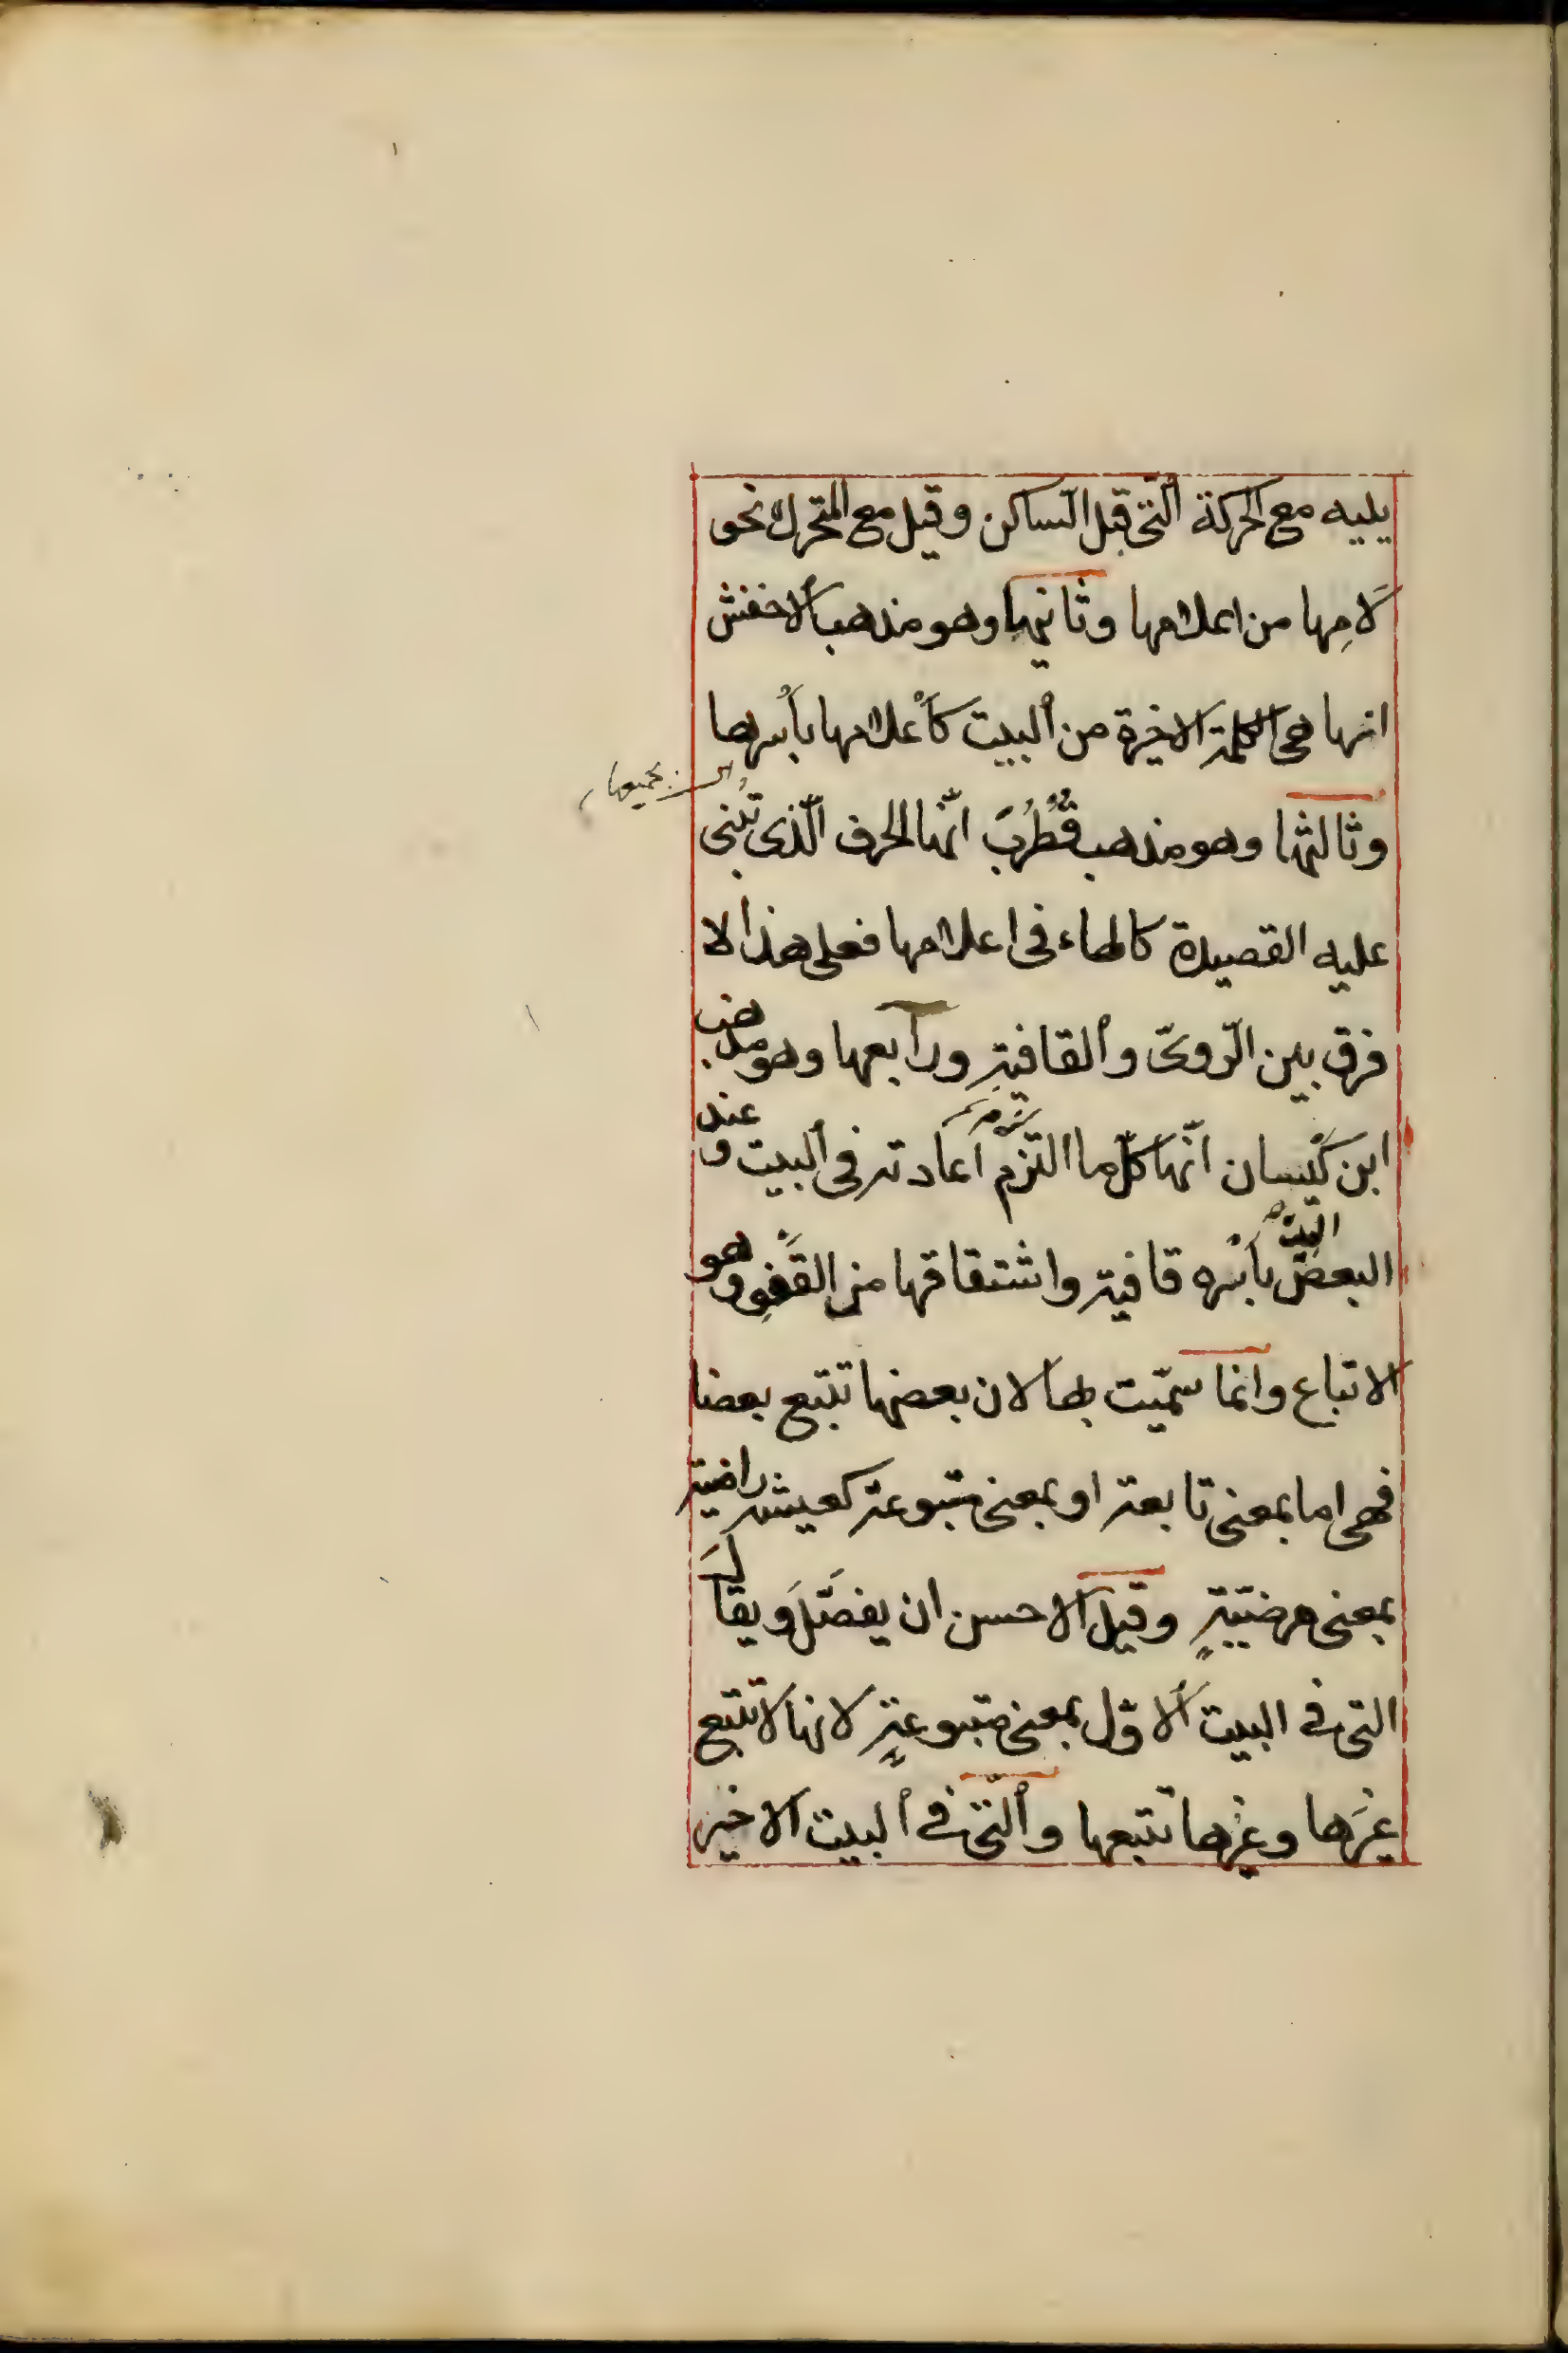 يليه مع الحركة الّتى قبل السّاكن وقيل مع المتحرك نحو
لَامِها من اعلامها وثانيها وهو مذهب ألاخفش
انها هى الكلمة الاخيرة من ألبيت كأعْلامها بأسْرها
بجميعها
وثالثها وهو مذهب قُطْرُبَ انّها الحرف الّذى تُبْنى
عليه القصيدة كالهاء فى اعلامها فعلى هذا لا
فرق بين الرّوىّ وألقافيةِ ورابعها وهو مذهب
ابن كَيْسان انّها كلّ ما التزم اعادته فى ألبيت وعند
البيت
البعض بأسْره قافية واشتقاقها من القَفْوِ وهو
الاتباع وانما سمّيت بها لان بعضها تتبع بعضا
فهى اما بمعنى تابعة او بمعنى متبوعة كعيشة راضية
بمعنى مرضيّةٍ وقيل الاحسن ان يفصَّلَ ويقالَ
التى فى البيت ألاوّل بمعنى متبوعةٍ لانها لا تتبع
غيْرَها وغيْرها تتبعها وألّتى فى ألبيت الاخير